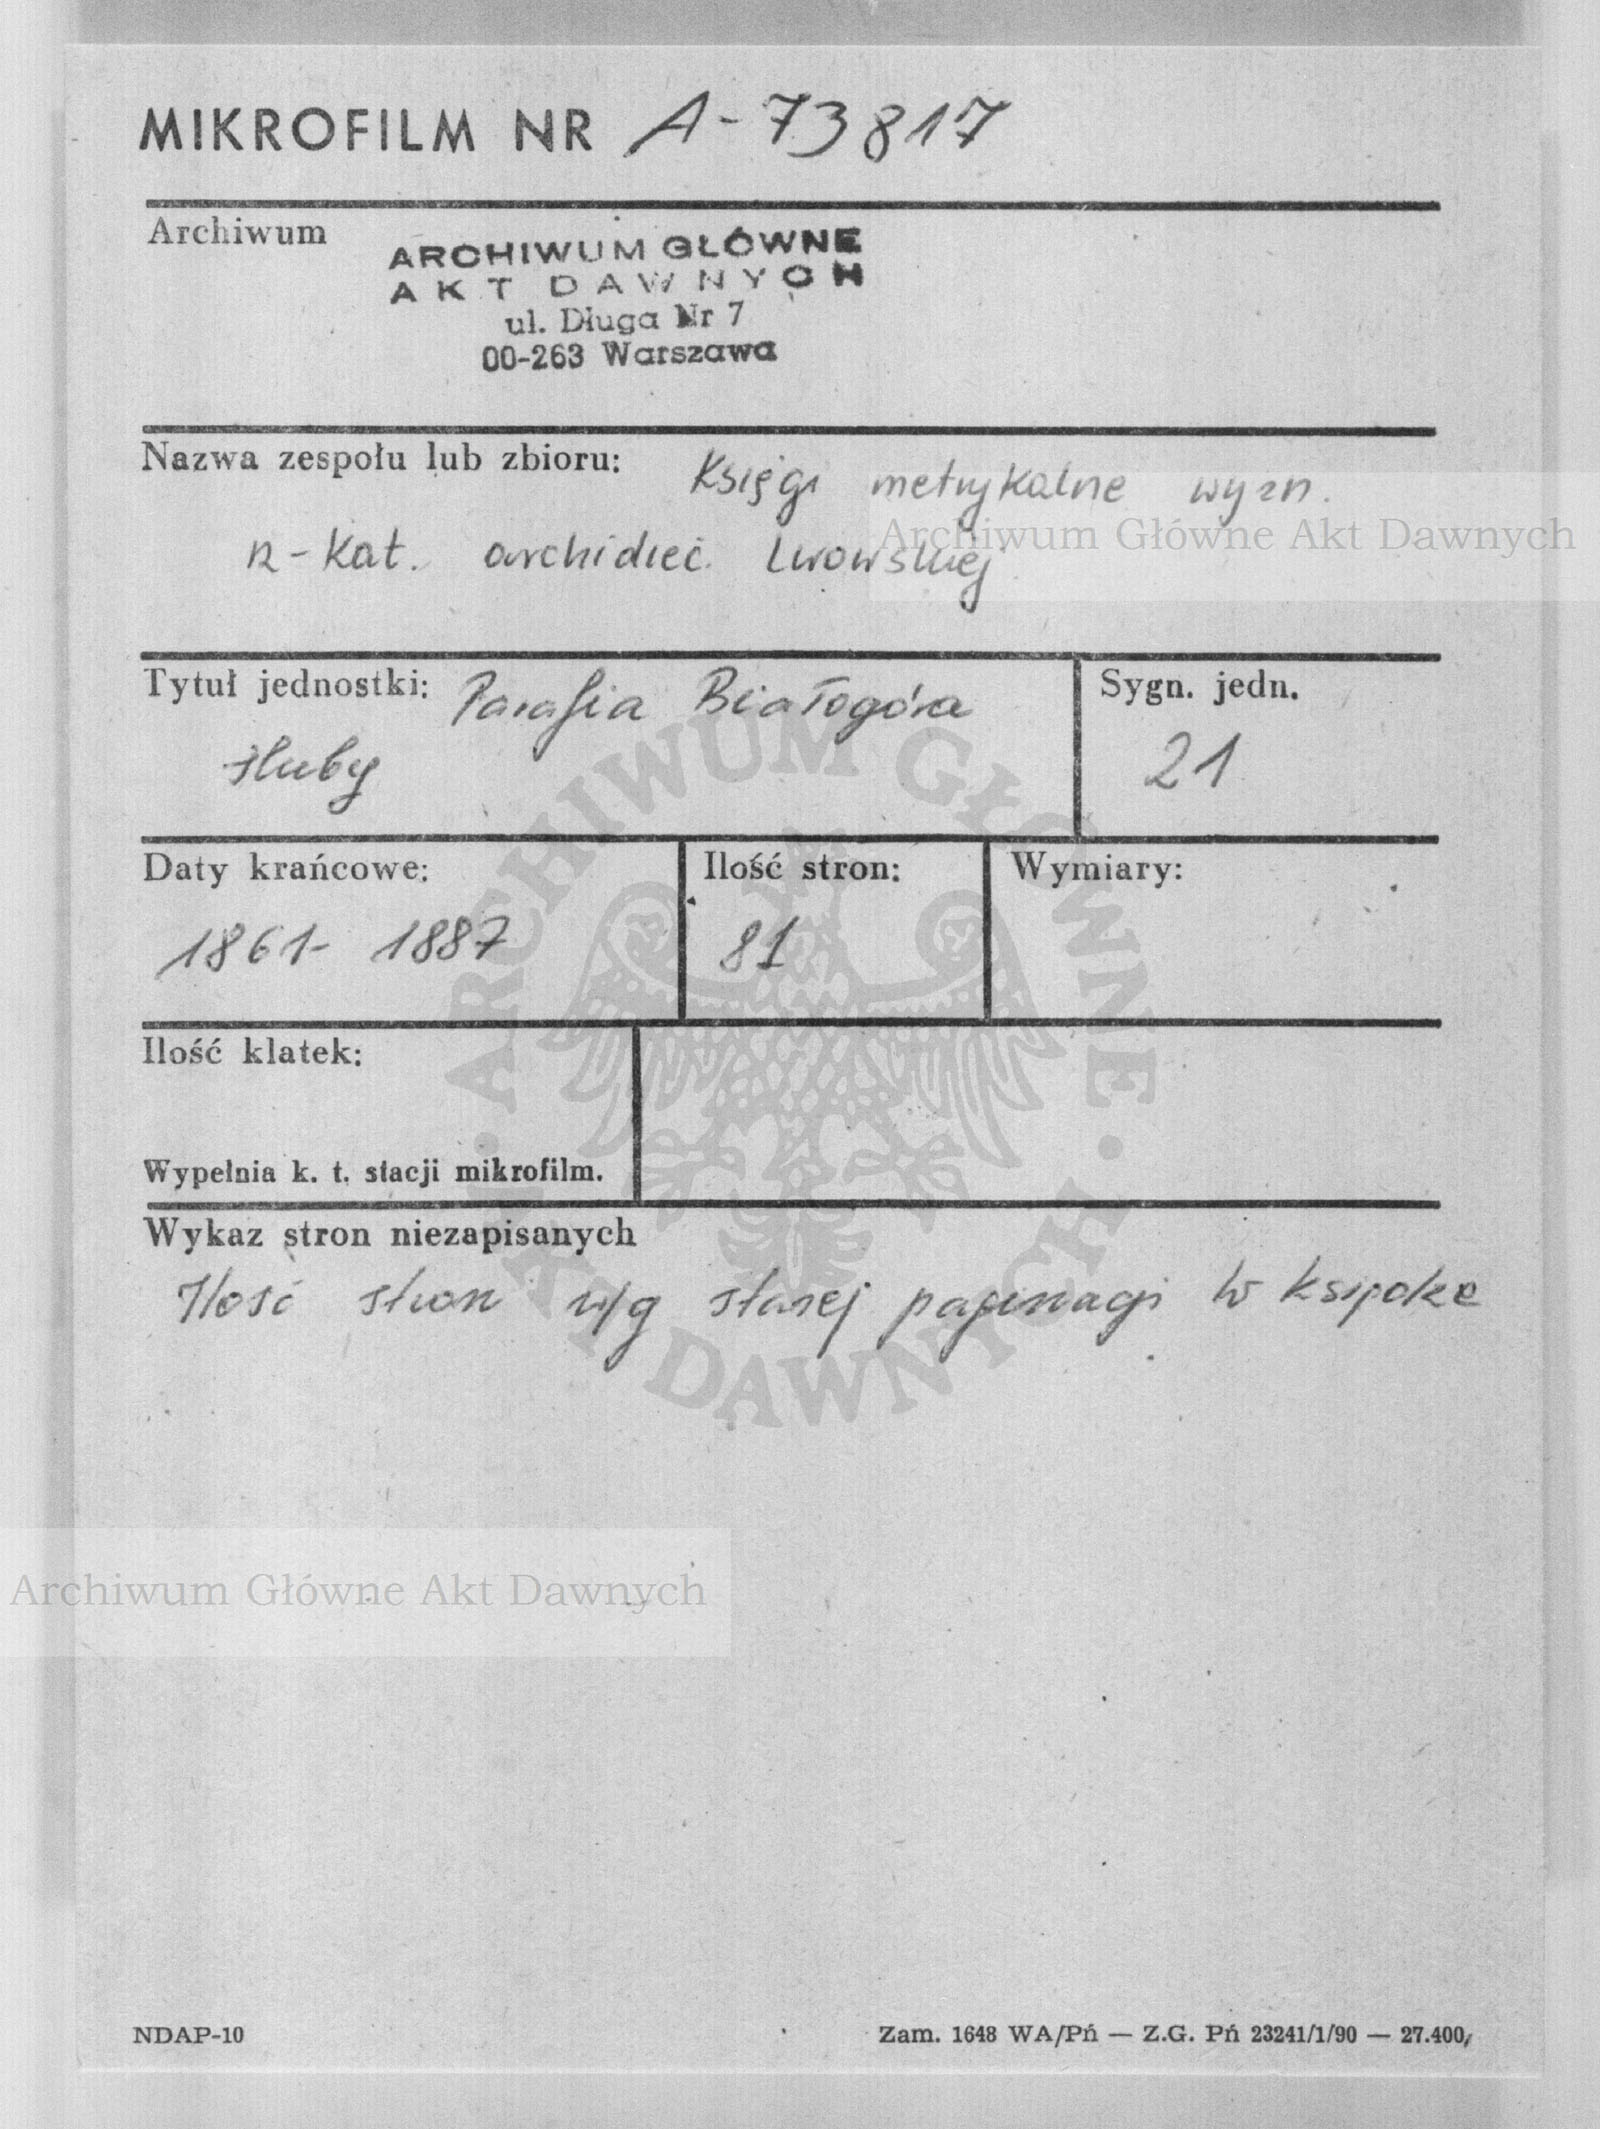 MIKROFILM NR A-73817
Archiwum
ARCHIWUM GŁÓWNE
AKT DAWNYCH
ul. Długa Nr 7
00-263 Warszawa
Nazwa zespołu lub zbioru: Księgi metrykalne wyzn.
Archiwum Główne Akt Dawnych
R-Kat. archidiec. Lwowskiej
Tytuł jednostki: Parafia Białogóra
śluby
Sygn. jedn.
21
Daty krańcowe:
1861- 1887
Ilość stron:
81
Wymiary:
Ilość klatek:
Wypełnia k. t. stacji mikrofilm.
Wykaz stron niezapisanych
Ilość stron w/g starej paginacji w książce
ARCHIWUM GŁÓWNE · AKT DAWNYCH ·
Archiwum Główne Akt Dawnych
NDAP-10
Zam. 1648 WA/Pń — Z.G. Pń 23241/1/90 — 27.400,